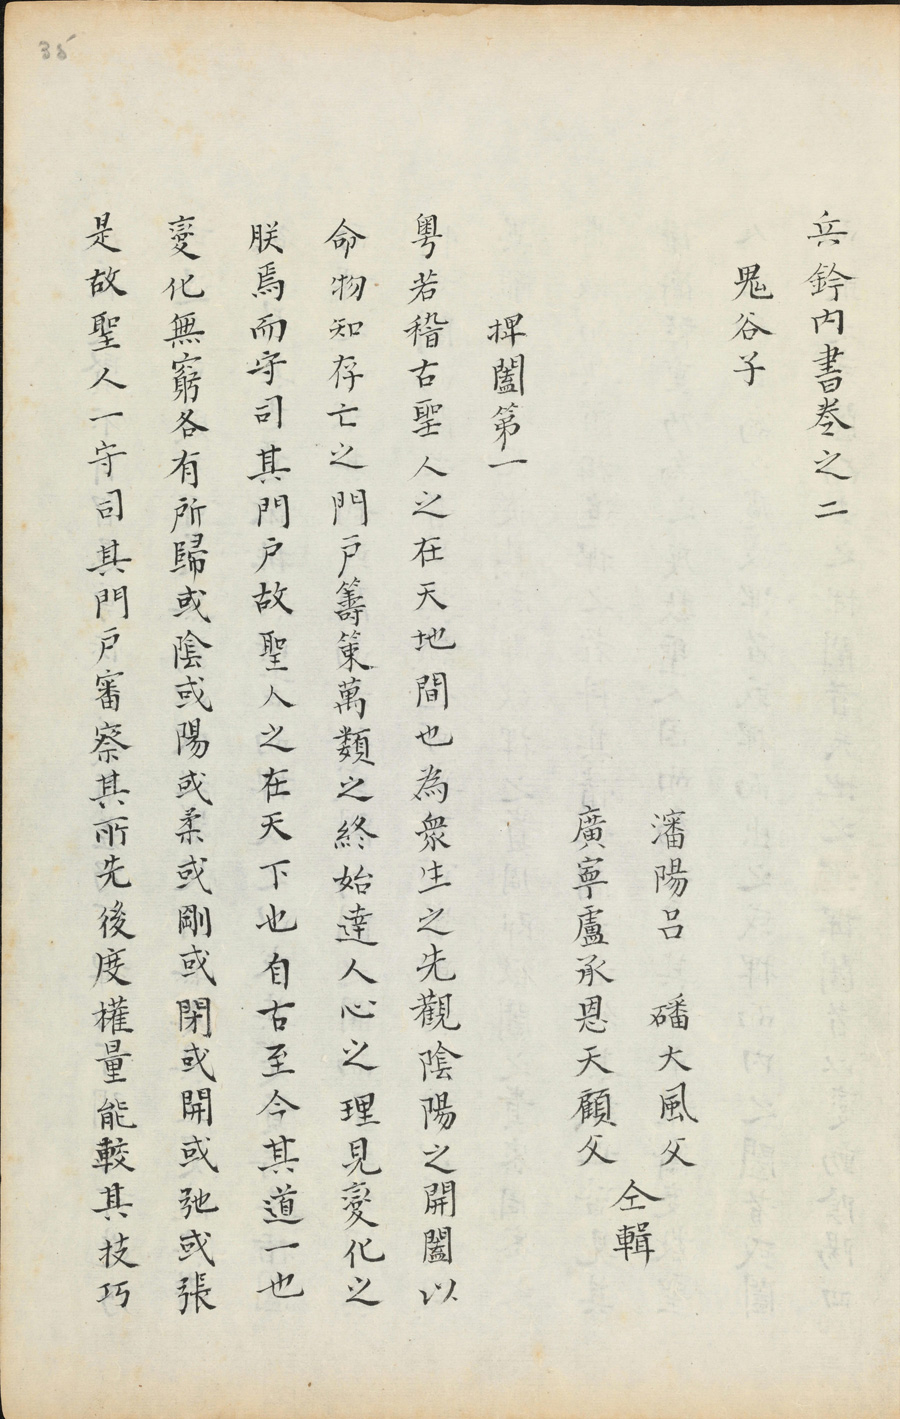 兵鈐内書卷之二
鬼谷子
瀋陽呂　磻大風父
廣寧盧承恩天顧父
仝輯
捭闔第一
粤若稽古聖人之在天地間也為衆生之先觀陰陽之開闔以
命物知存亡之門戶籌策萬類之終始達人心之理見變化之
朕焉而守司其門戶故聖人之在天下也自古至今其道一也
變化無窮各有所歸或陰或陽或柔或剛或閉或開或弛或張
是故聖人一守司其門戶審察其所先後度權量能較其技巧
35